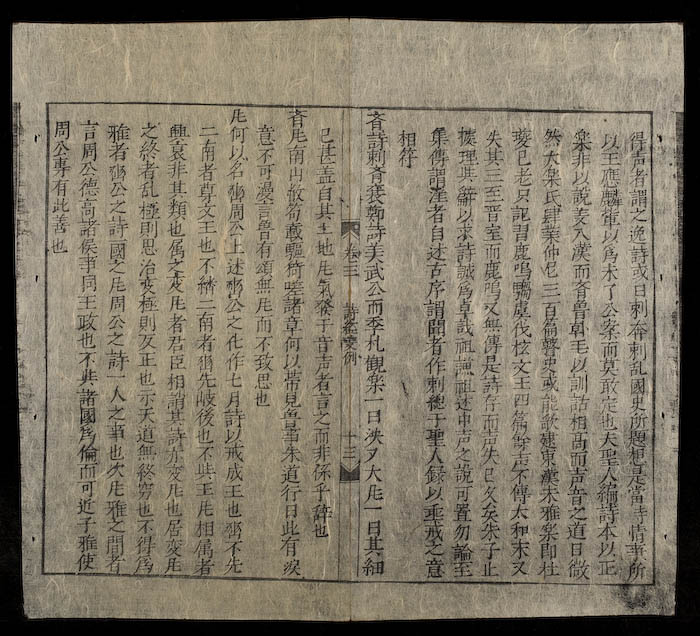 得声者謂之逸詩或曰刺奔刺乱國史所題想是當時情事所
以王應麟輩以爲未了公案而莫敢定也夫聖人編詩本以正
樂非以說義入漢而齊魯韓毛以訓詁相高而声音之道日微
然大樂氏肄業仲尼三百篇瞽史或能歌建東漢末雅樂即杜
夔已老只記習鹿鳴騶虞伐檀文王四篇餘声不傳太和末又
失其三至晉室而鹿鳴又無傳是詩存而声失已久矣朱子止
據理與辭以求詩誠爲卓哉祖謙祖述中声之說可置勿論至
集傳謂淫者自述古序謂聞者作刺總于聖人録以垂戒之意
相符
齊詩刺齊襄鄭詩美武公而季札観樂一曰泱々大風一曰其細
已甚盖自其土地風氣發于音声者言之而非係乎辞也
齊風南山敝笱載驅猗嗟諸章何以帶見魯事朱道行曰此有深
意不可過言魯有頌無風而不致思也
風何以名豳周公上述豳公之化作七月詩以戒成王也豳不先
二南者尊文王也不綉二南者豳先岐後也不與王風相属者
興衰非其類也属之変風者君臣相誚其詩亦変風也居変風
之終者乱極則思治変極則反正也示天道無終窮也不得爲
雅者豳公之詩一國之風周公之詩一人之事也次風雅之間者
言周公德高諸侯事同王政也不與諸國爲倫而可近子雅使
周公專有此善也
卷三 詩経変例 十三